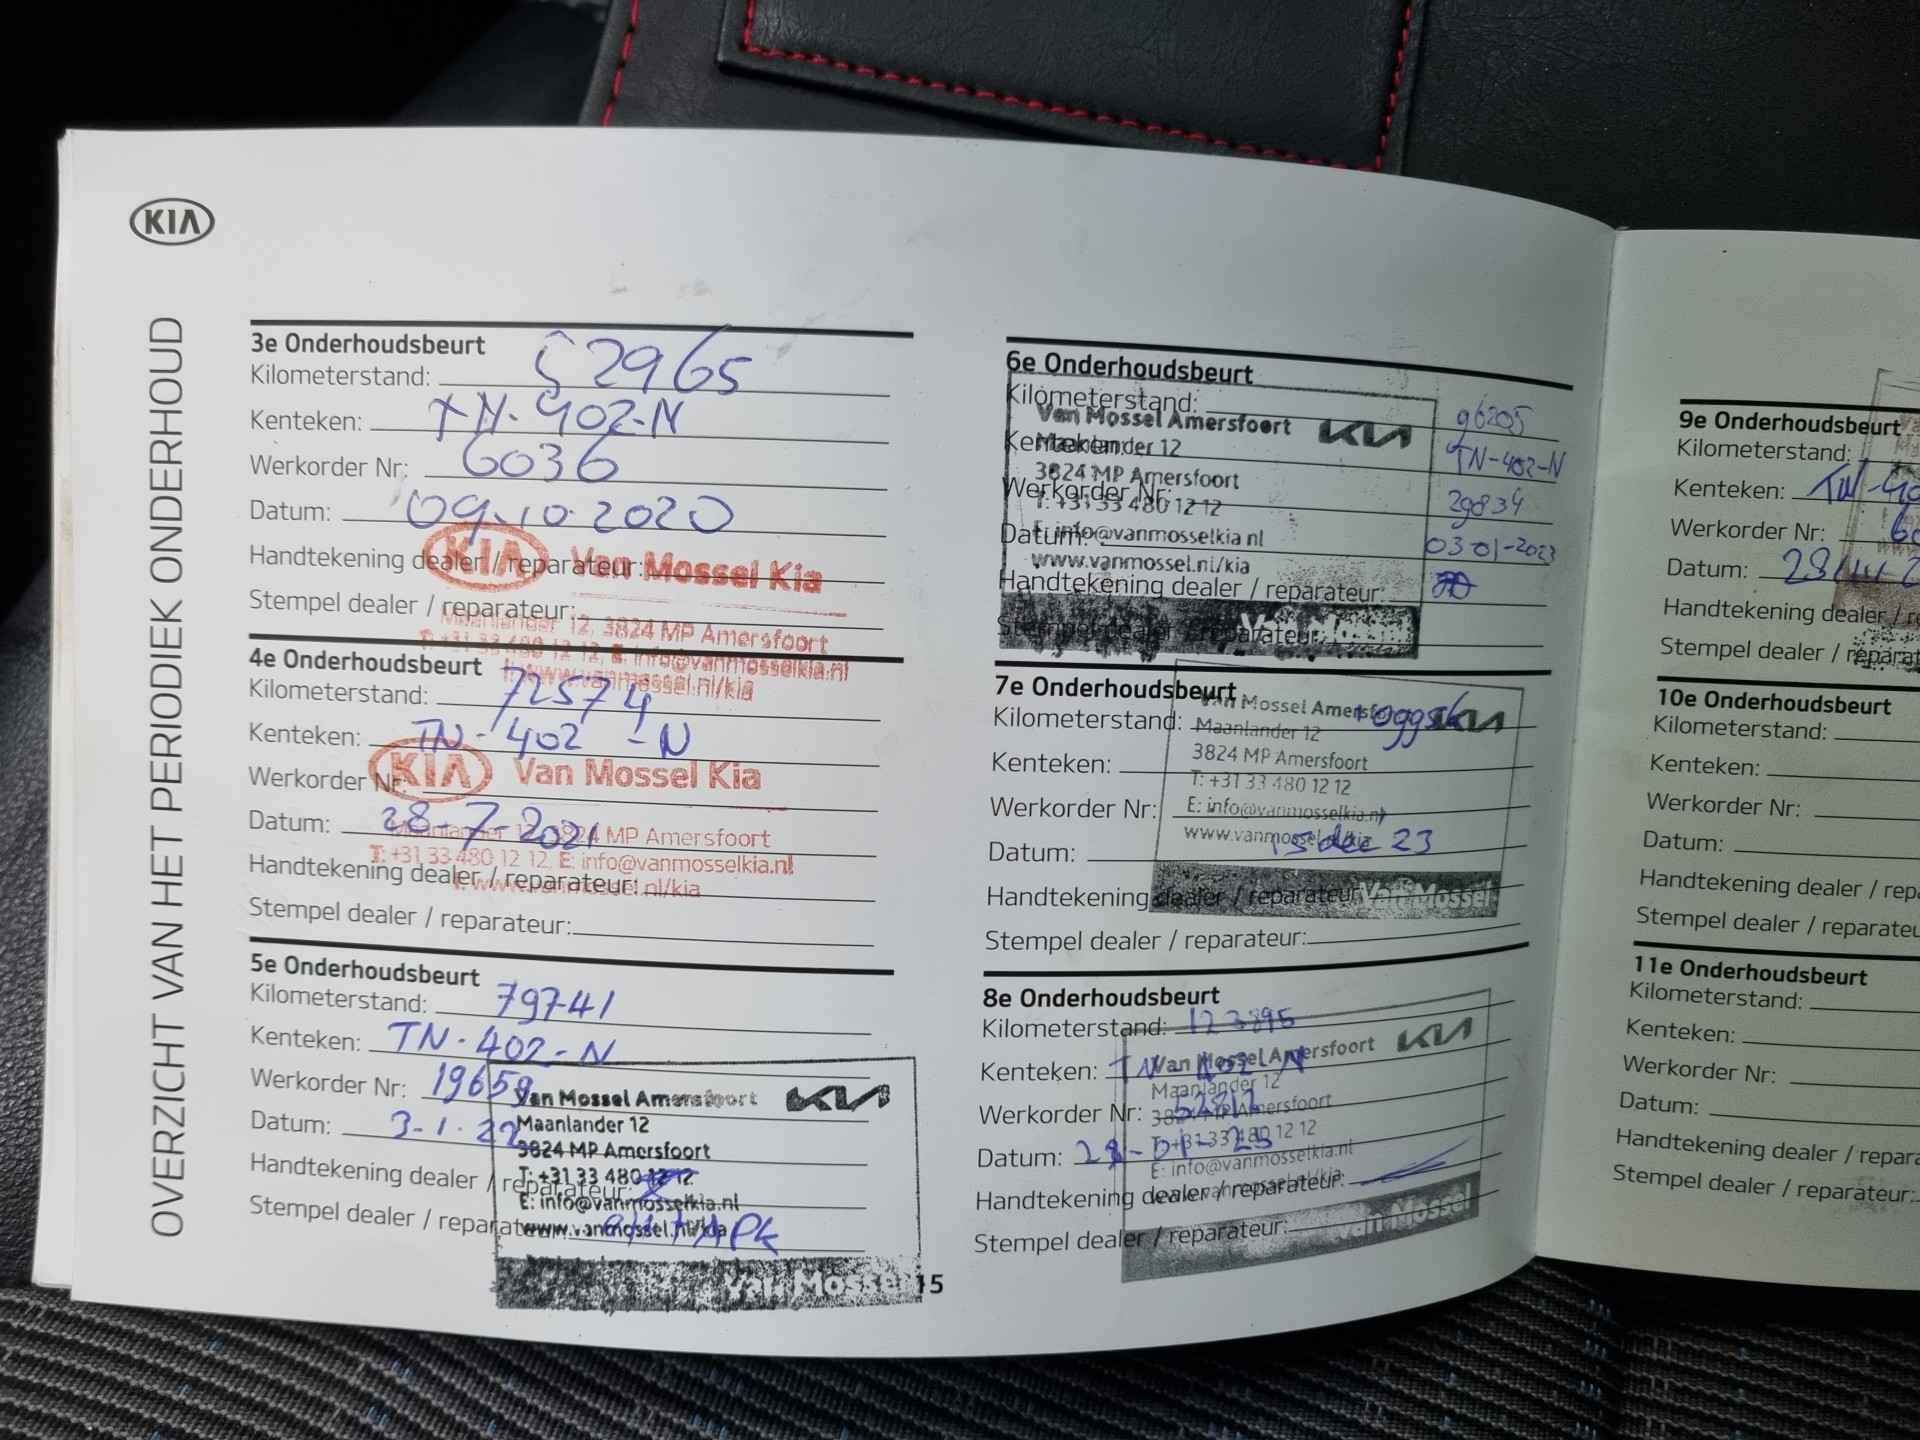 KIA
OVERZICHT VAN HET PERIODIEK ONDERHOUD
3e Onderhoudsbeurt
Kilometerstand: 52965
Kenteken: TN-402-N
Werkorder Nr: 6036
Datum: 09-10-2020
Handtekening dealer / reparateur:
Stempel dealer / reparateur:
KIA Van Mossel Kia
Maanlander 12, 3824 MP Amersfoort
T: +31 33 480 12 12, E: info@vanmosselkia.nl
I: www.vanmossel.nl/kia
4e Onderhoudsbeurt
Kilometerstand: 72574
Kenteken: TN-402-N
Werkorder Nr:
Datum: 28-7-2021
Handtekening dealer / reparateur:
Stempel dealer / reparateur:
KIA Van Mossel Kia
Maanlander 12, 3824 MP Amersfoort
T: +31 33 480 12 12, E: info@vanmosselkia.nl
I: www.vanmossel.nl/kia
5e Onderhoudsbeurt
Kilometerstand: 79741
Kenteken: TN-402-N
Werkorder Nr: 19659
Datum: 3-1-22
Handtekening dealer / reparateur:
Stempel dealer / reparateur: APK
Van Mossel Amersfoort KIA
Maanlander 12
3824 MP Amersfoort
T: +31 33 480 12 12
E: info@vanmosselkia.nl
www.vanmossel.nl/kia
Van Mossel
15
6e Onderhoudsbeurt
Kilometerstand: 96205
Kenteken: TN-402-N
Werkorder Nr: 29834
Datum: 03-01-2023
Handtekening dealer / reparateur:
Stempel dealer / reparateur:
Van Mossel Amersfoort KIA
Maanlander 12
3824 MP Amersfoort
T: +31 33 480 12 12
E: info@vanmosselkia.nl
www.vanmossel.nl/kia
Van Mossel
7e Onderhoudsbeurt
Kilometerstand:
Kenteken:
Werkorder Nr:
Datum: 15 dec 23
Handtekening dealer / reparateur:
Stempel dealer / reparateur:
Van Mossel Amersfoort KIA
Maanlander 12
3824 MP Amersfoort
T: +31 33 480 12 12
E: info@vanmosselkia.nl
www.vanmossel.nl/kia
Van Mossel
8e Onderhoudsbeurt
Kilometerstand: 123895
Kenteken: TN 402 N
Werkorder Nr:
Datum:
Handtekening dealer / reparateur:
Stempel dealer / reparateur:
Van Mossel Amersfoort KIA
Maanlander 12
3824 MP Amersfoort
T: +31 33 480 12 12
E: info@vanmosselkia.nl
www.vanmossel.nl/kia
Van Mossel
9e Onderhoudsbeurt
Kilometerstand:
Kenteken: TN-40
Werkorder Nr:
Datum:
Handtekening dealer / re
Stempel dealer / reparat
10e Onderhoudsbeurt
Kilometerstand:
Kenteken:
Werkorder Nr:
Datum:
Handtekening dealer / rep
Stempel dealer / reparateu
11e Onderhoudsbeurt
Kilometerstand:
Kenteken:
Werkorder Nr:
Datum:
Handtekening dealer / repara
Stempel dealer / reparateur: